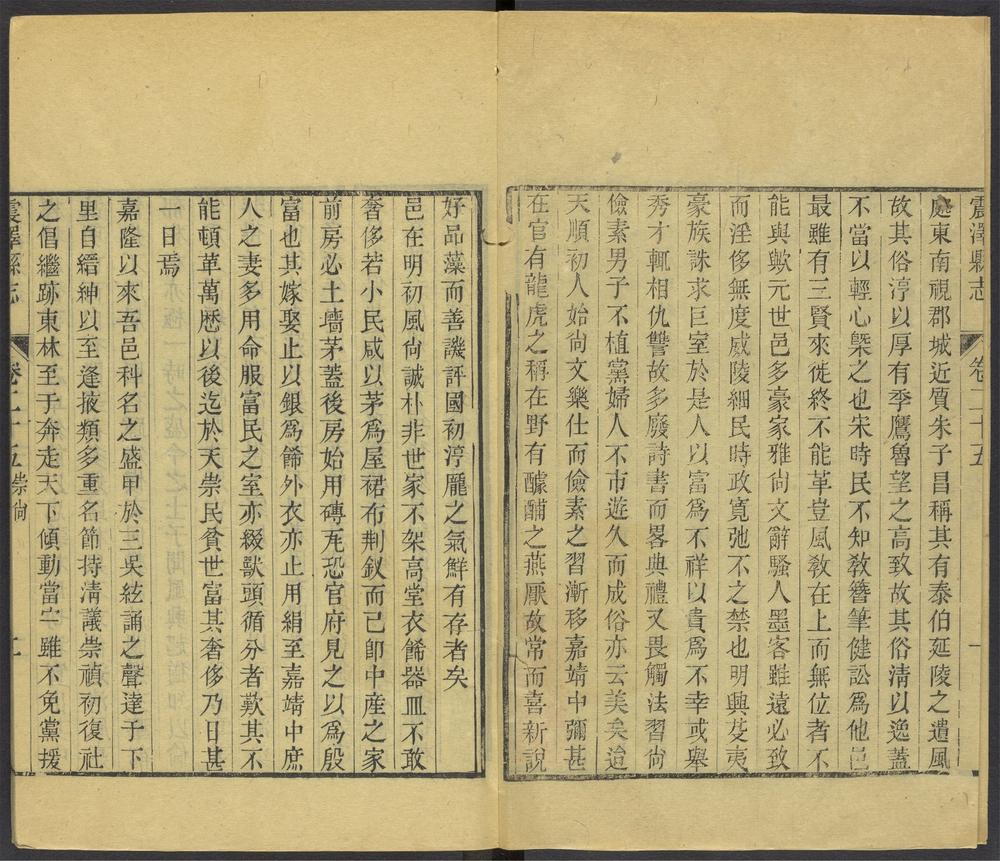 震澤縣志 卷二十五 一
處東南視郡城近質朱子昌稱其有泰伯延陵之遺風
故其俗淳以厚有季鷹魯望之高致故其俗清以逸蓋
不當以輕心槩之也宋時民不知敎簪筆健訟爲他邑
最雖有三賢來徙終不能革豈風敎在上而無位者不
能與歟元世邑多豪家雅尙文辭騷人墨客雖遠必致
而淫侈無度威陵細民時政寛弛不之禁也明興芟夷
豪族誅求巨室於是人以富爲不祥以貴爲不幸或舉
秀才輒相仇讐故多廢詩書而畧典禮又畏觸法習尙
儉素男子不植黨婦人不市遊久而成俗亦云美矣迨
天順初人始尙文樂仕而儉素之習漸移嘉靖中彌甚
在官有龍虎之稱在野有醵酺之燕厭故常而喜新說
好品藻而善譏評國初淳龐之氣鮮有存者矣
邑在明初風尙誠朴非世家不架高堂衣餙器皿不敢
奢侈若小民咸以茅爲屋裙布荆釵而已卽中産之家
前房必土墻茅蓋後房始用磚瓦恐官府見之以爲殷
富也其嫁娶止以銀爲餙外衣亦止用絹至嘉靖中庶
人之妻多用命服富民之室亦綴獸頭循分者歎其不
能頓革萬厯以後迄於天崇民貧世富其奢侈乃日甚
一日焉
嘉隆以來吾邑科名之盛甲於三吳絃誦之聲達于下
里自縉紳以至逢掖類多重名節持清議崇禎初復社
之倡繼跡東林至于奔走天下傾動當宁雖不免黨援
震澤縣志 卷二十五 崇尙 二